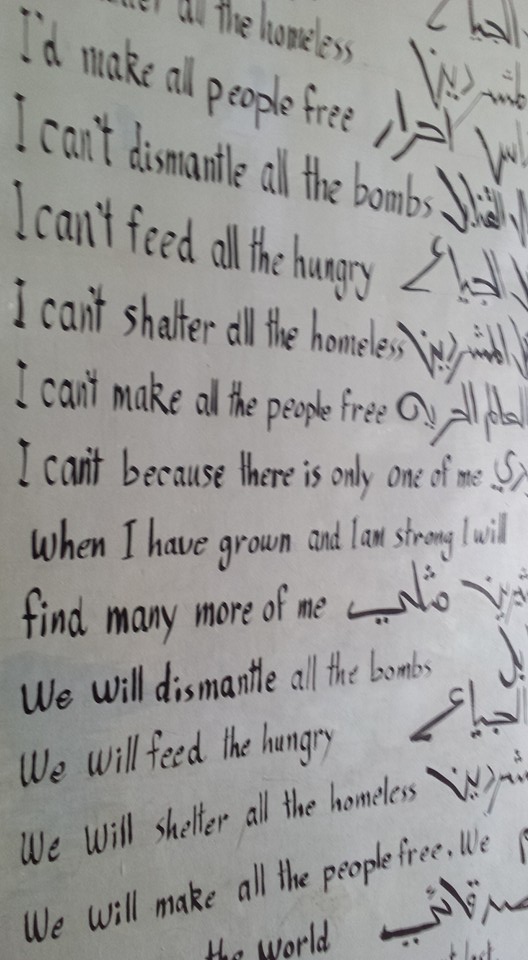 all the homeless الجياع
I'd make all people free احرار
I can't dismantle all the bombs القنابل
I can't feed all the hungry الجياع
I can't shalter all the homeless المشردين
I can't make all the people free العالم الحرية
I can't because there is only one of me
When I have grown and I am strong I will
find many more of me مثلي
We will dismantle all the bombs
We will feed the hungry الجياع
We will shelter all the homeless
We will make all the people free. We
the World